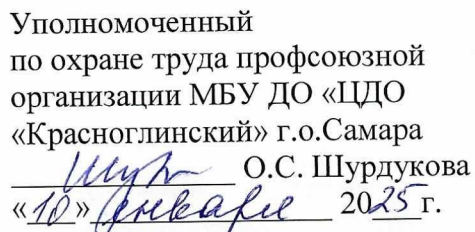 Уполномоченный
по охране труда профсоюзной
организации МБУ ДО «ЦДО
«Красноглинский» г.о.Самара
О.С. Шурдукова
«10» января 2025 г.